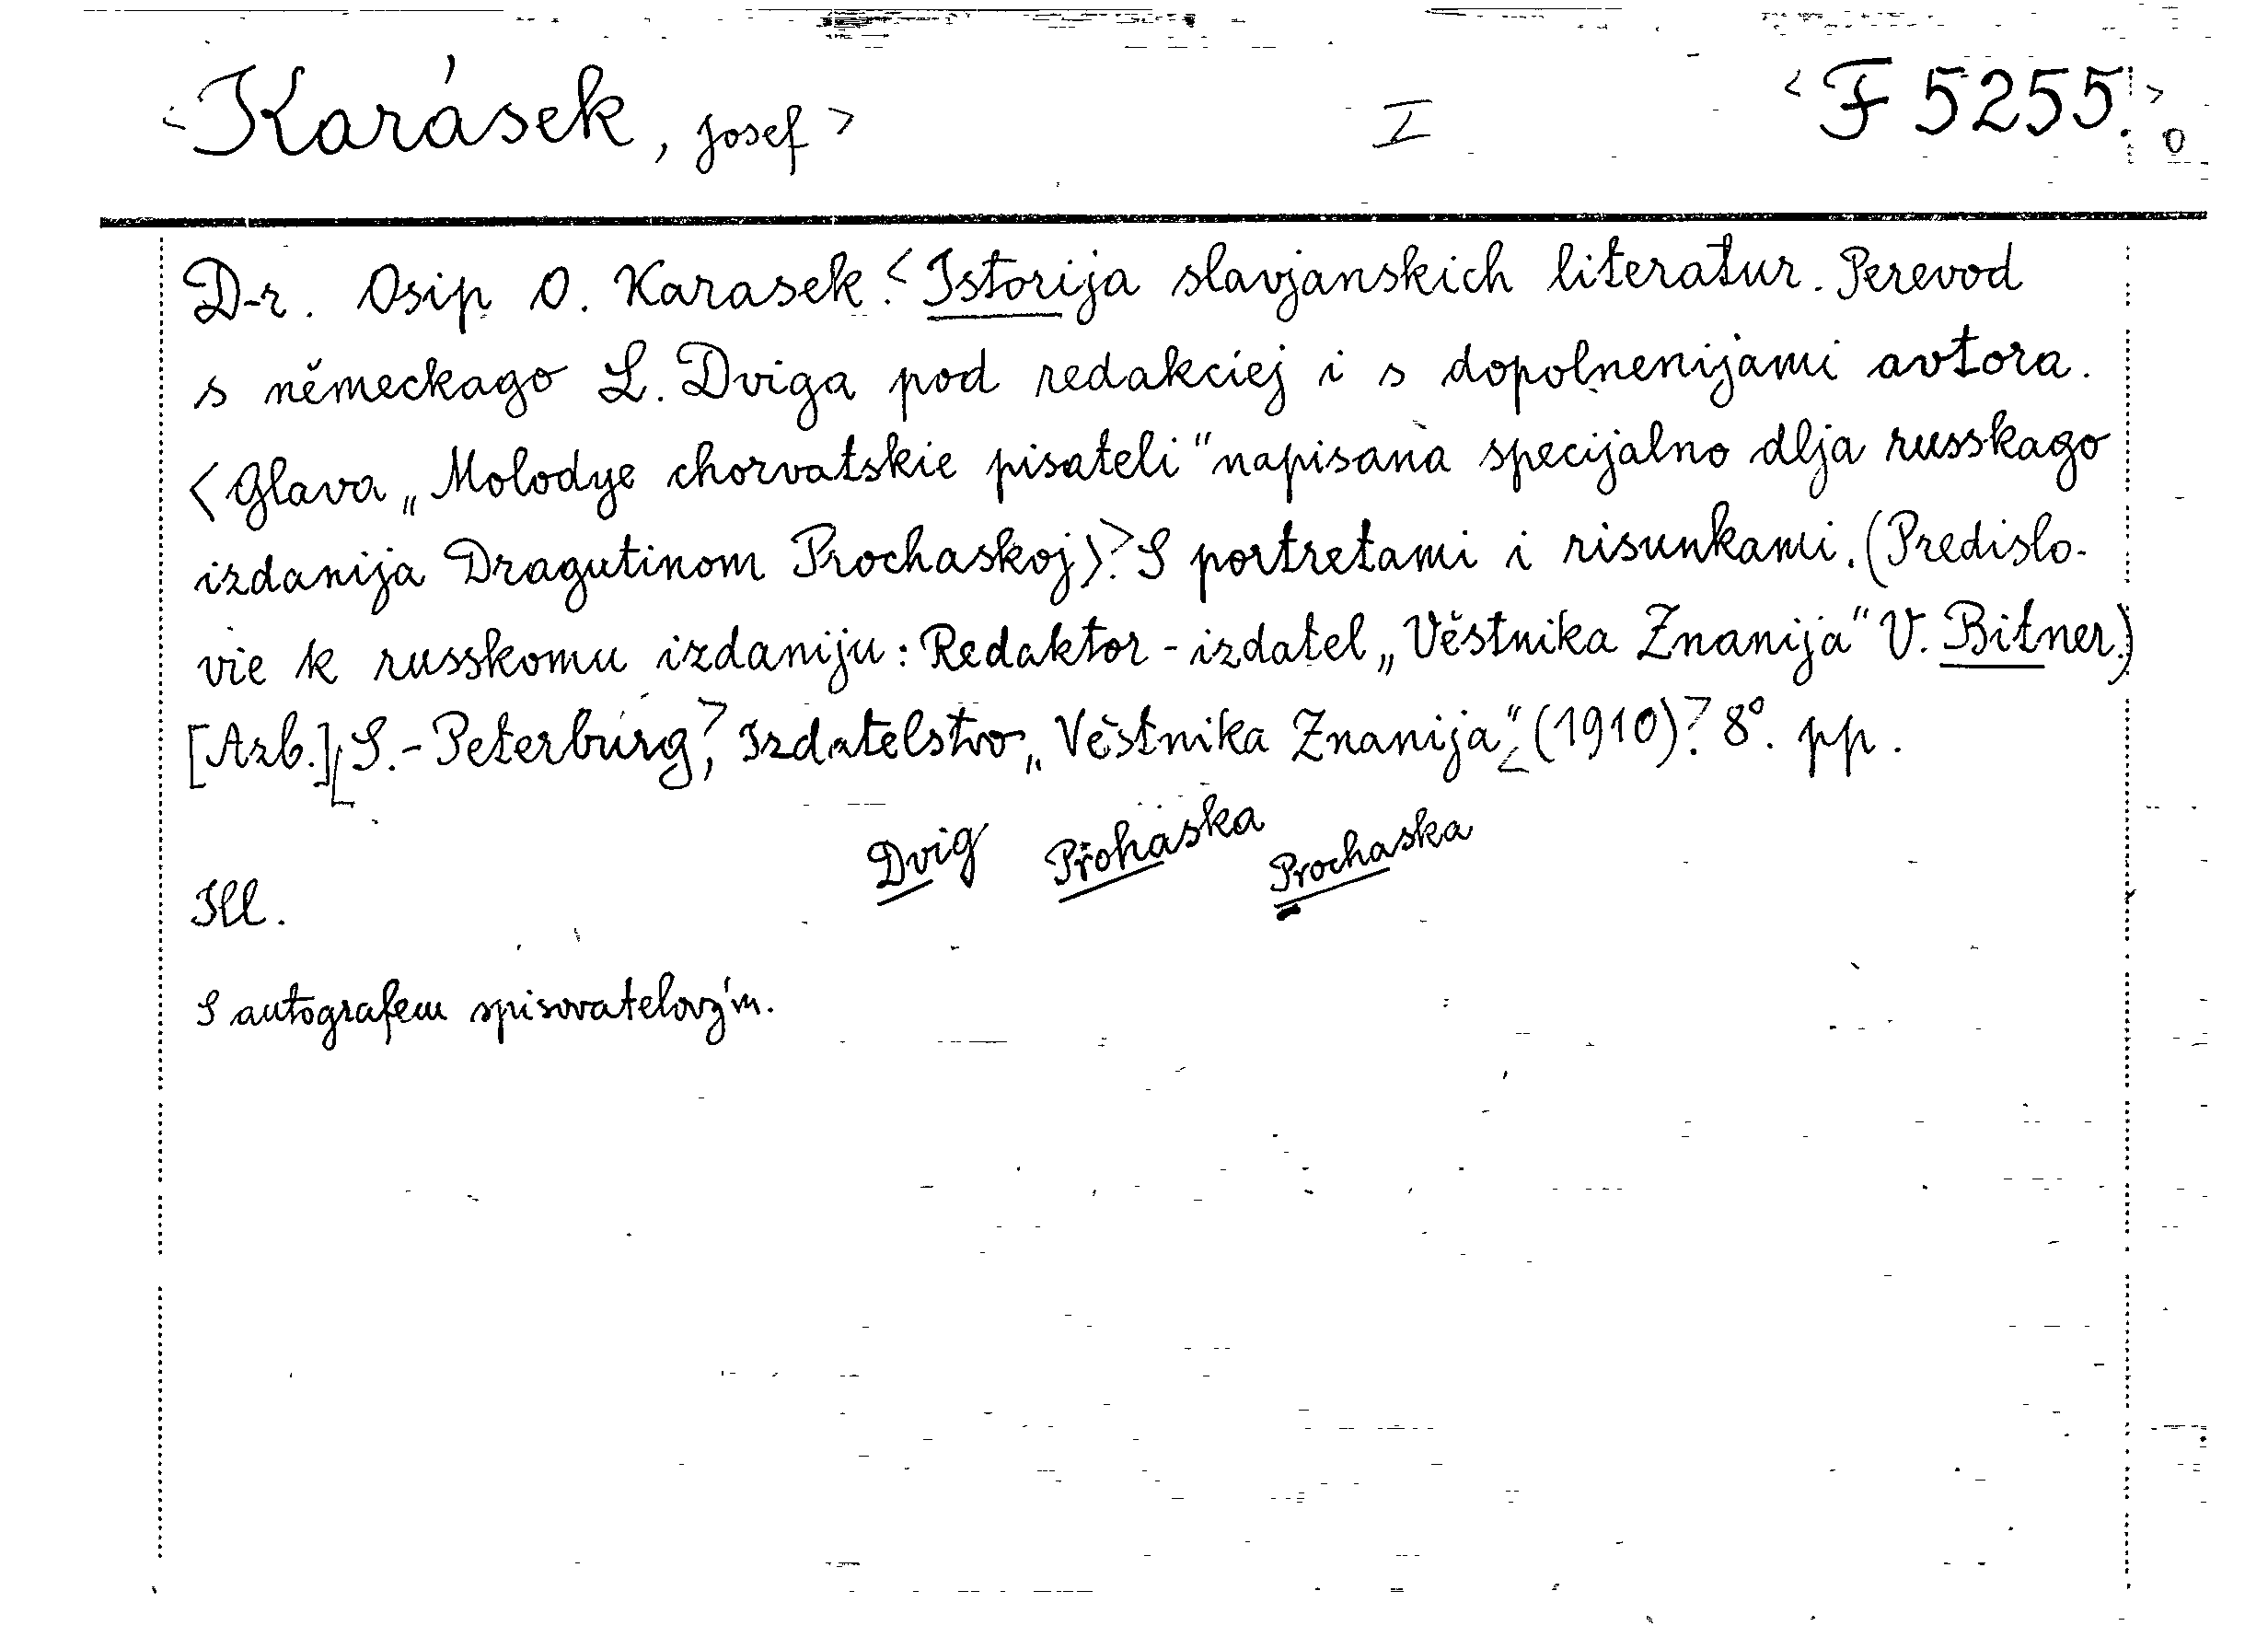 <Karásek, Josef> I <F 5255.>o
D-r. Osip O. Karasek.<Istorija slavjanskich literatur. Perevod
s německago L. Dviga pod redakciej i s dopolnenijami avtora.
<Glava „Molodye chorvatskie pisateli" napisana specijalno dlja russkago
izdanija Dragutinom Prochaskoj>.> S portretami i risunkami. (Predislo-
vie k russkomu izdaniju: Redaktor-izdatel „Věstnika Znanija" V. Bitner.)
[Azb.] S.-Peterburg,> Izdatelstvo „Věstnika Znanija",< (1910).> 8°. pp.
Dvig Prohaska Prochaska
Ill.
S autografem spisovatelovým.